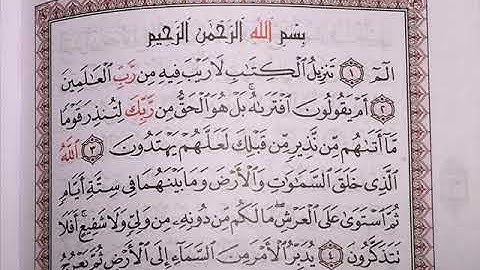 بِسْمِ اللَّهِ الرَّحْمَٰنِ الرَّحِيمِ
الٓمٓ ١ تَنزِيلُ الْكِتَابِ لَا رَيْبَ فِيهِ مِن رَّبِّ الْعَالَمِينَ
٢ أَمْ يَقُولُونَ افْتَرَىٰهُ بَلْ هُوَ الْحَقُّ مِن رَّبِّكَ لِتُنذِرَ قَوْمًا
مَّا أَتَىٰهُم مِّن نَّذِيرٍ مِّن قَبْلِكَ لَعَلَّهُمْ يَهْتَدُونَ ٣ اللَّهُ
الَّذِي خَلَقَ السَّمَٰوَٰتِ وَالْأَرْضَ وَمَا بَيْنَهُمَا فِي سِتَّةِ أَيَّامٍ
ثُمَّ اسْتَوَىٰ عَلَى الْعَرْشِ مَا لَكُم مِّن دُونِهِ مِن وَلِيٍّ وَلَا شَفِيعٍ أَفَلَا
تَتَذَكَّرُونَ ٤ يُدَبِّرُ الْأَمْرَ مِنَ السَّمَاءِ إِلَى الْأَرْضِ ثُمَّ يَعْرُجُ